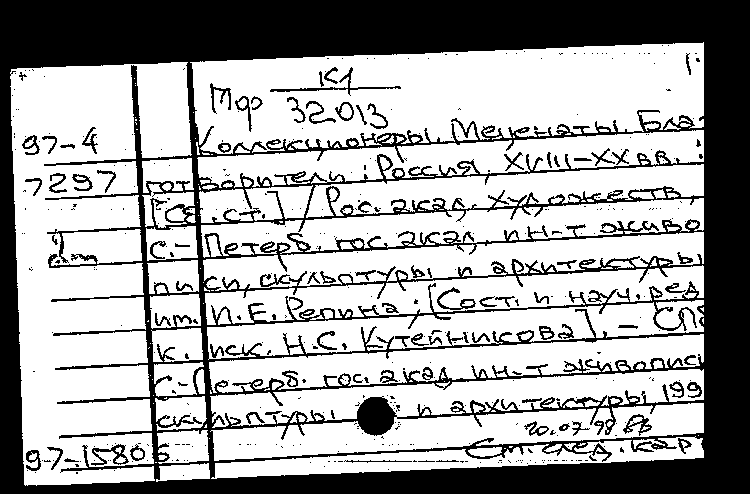 К1
Мор 32013
97-4 Коллекционеры. Меценаты. Бла
7297 готворители : Россия, XVIII-XX вв. :
[Сб. ст.] / Рос. акад. художеств,
2 С.-Петерб. гос. акад. ин-т живо
писи, скульптуры и архитектуры
им. И.Е. Репина ; [Сост. и науч. ред.
к. иск. Н.С. Кутейникова]. - СПб
С.-Петерб. гос. акад. ин-т живопис
скульптуры и архитектуры, 199
20.07.98
97-15805 См. след. кар